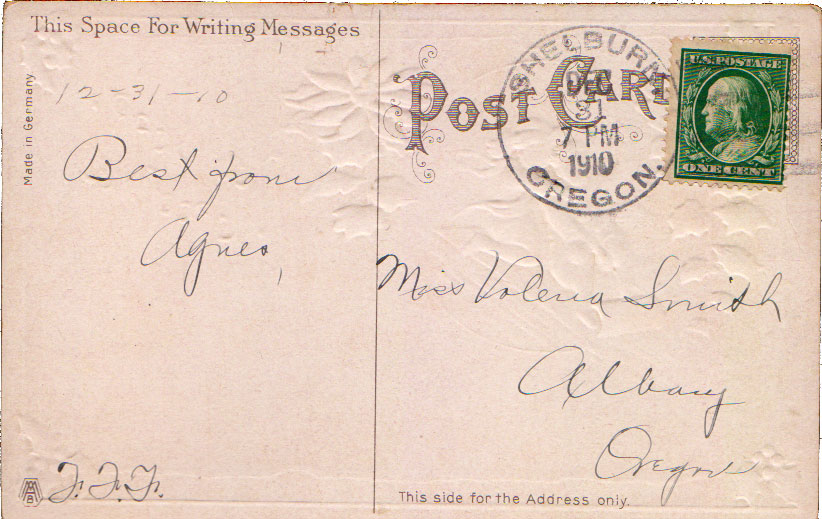 This Space For Writing Messages
Made in Germany
12-31-10
Best from
Agnes
F. F. F.
POST CARD
SHELBURN
DEC
31
7 PM
1910
OREGON.
U.S. POSTAGE
ONE CENT
Miss Valeria Smith
Albany
Oregon
This side for the Address only.